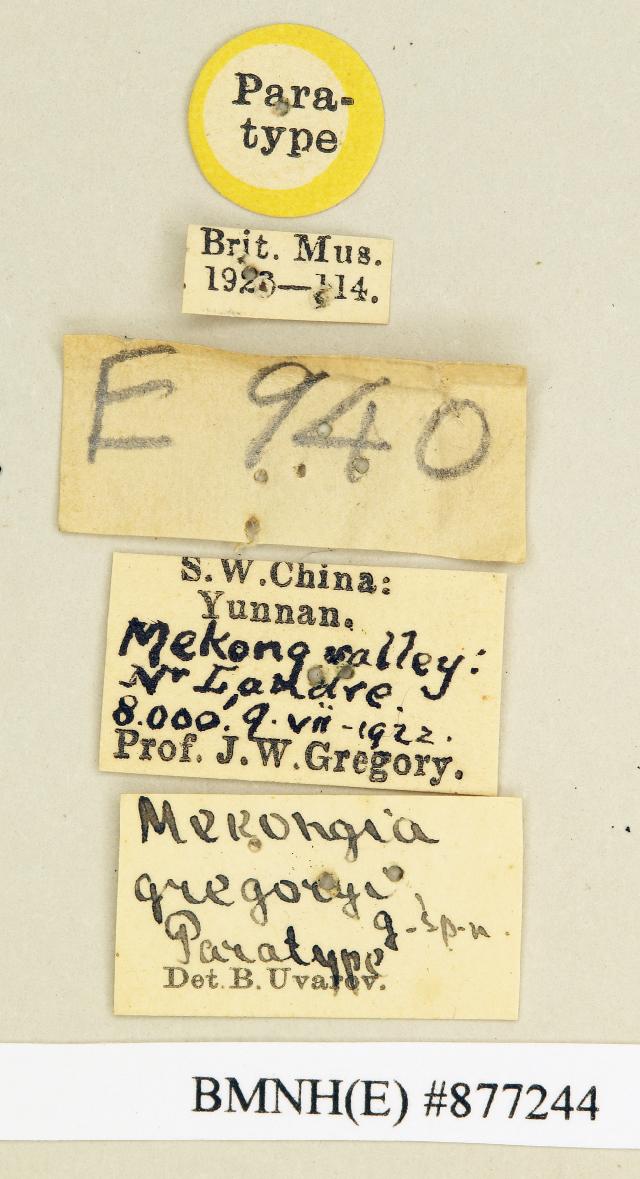 Para-
type
Brit. Mus.
1923—114.
E 940
S.W.China:
Yunnan.
Mekong valley:
Nr Landre.
8.000', 9.vii-1922.
Prof. J.W.Gregory.
Mekongia
gregoryi
g. & sp.n.
Paratype
Det. B. Uvarov.
BMNH(E) #877244